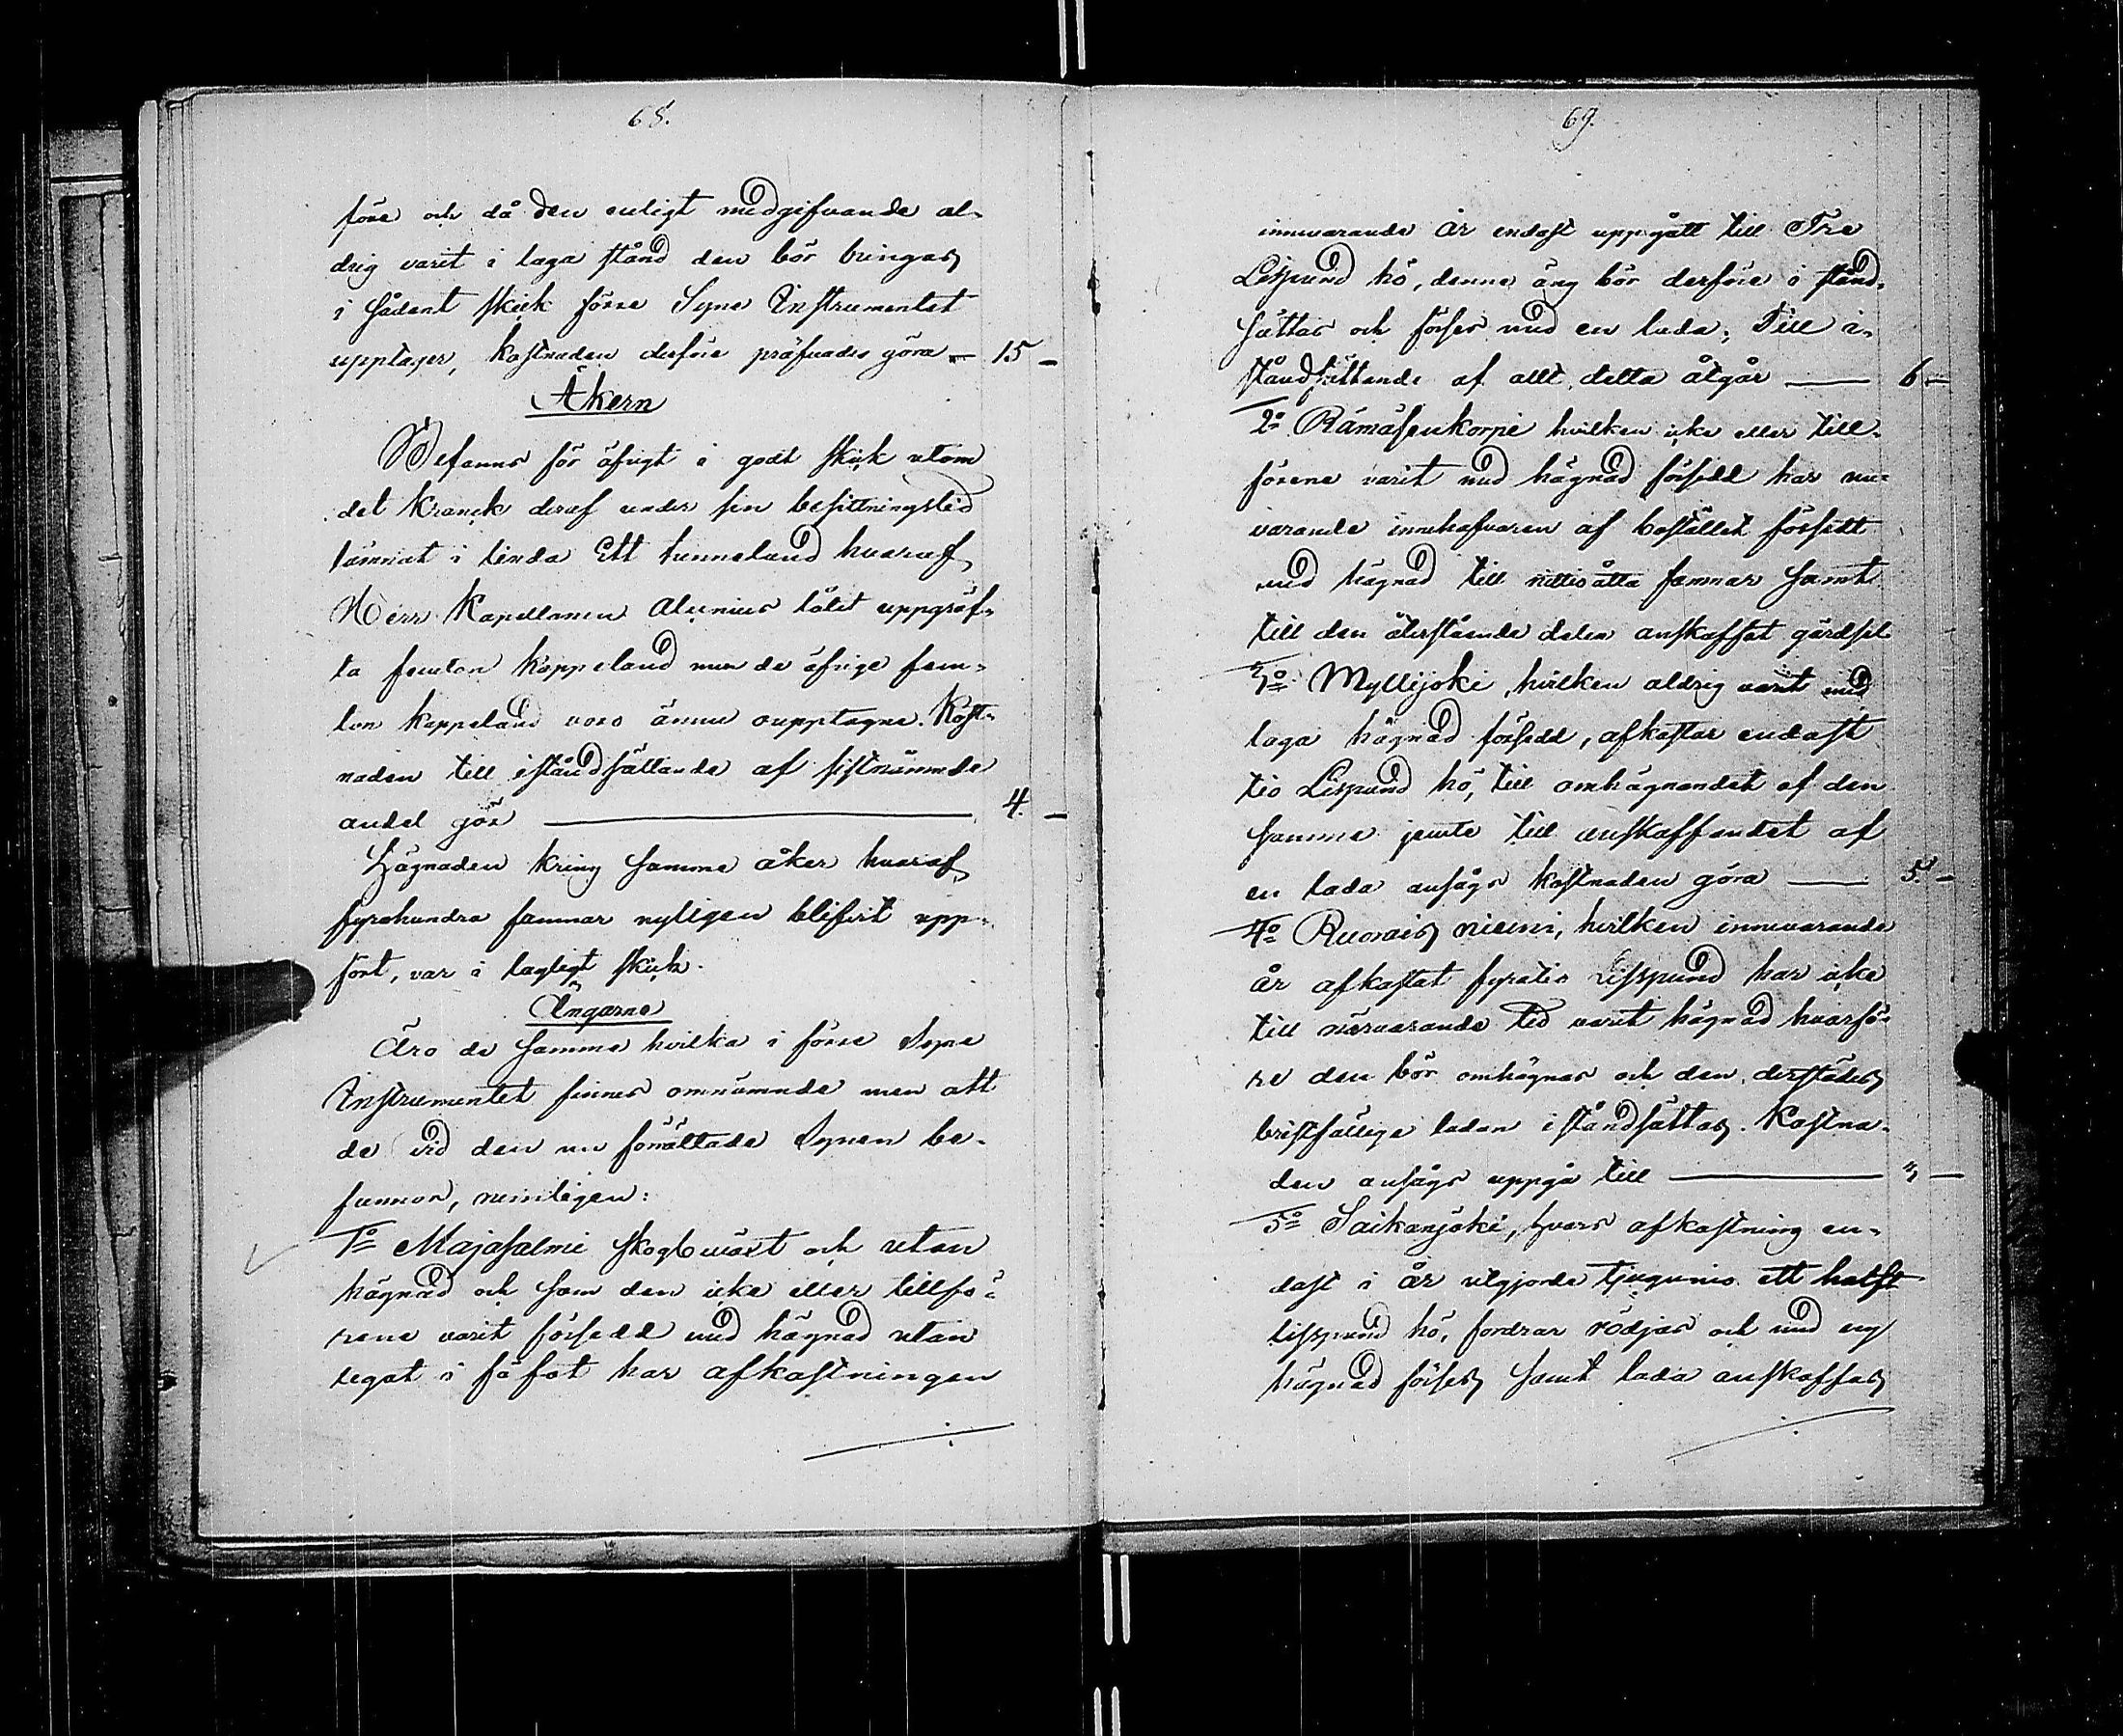 68.
före och då den enligt medgifvande al-
drig varit i laga stånd den bör bringas
i sådant skick förre Syne Instrumentet
upptager, kostnaden derföre pröfvades göra — 15 —
Åkern
Befanns för öfrigt i godt skick utom
det Kranck deraf under sin besittningstid
lämnat i linda Ett tunneland hvaraf
Herr Kapellanen Alcenius låtit uppgräf-
ta femton kappeland men de öfrige fem-
ton kappeland voro ännu oupptagne. Kost-
naden till iståndsättande af sistnämnde
andel gör — 4. —
Hägnaden kring samma åker hvaraf
fyrahundra famnar nyligen blifvit upp-
fört, var i lagligt skick.
Ängarne
Äro de samma hvilka i förre Syne
Instrumentet finnes omnämnde men att
de vid den nu förrättade Synen be-
funnos, nemligen:
1o Majasalmi skogbväxt och utan
hägnad och som den icke eller tillfö-
rene varit försedd med hägnad utan
legat i fäfot har afkastningen
69.
innevarande år endast uppgått till Tre
Lispund hö, denne äng bör derföre i stånd-
sättas och förses med en lada; Till i-
ståndsättande af allt detta åtgår — 6 —
2o Rämäsenkorpi hvilken icke eller till-
förene varit med hägnad försedd har nu-
varande innehafvaren af bostället försett
med hägnad till nittioåtta famnar samt
till den återstående delen anskaffat gärdsel
3o Myllyjoki, hvilken aldrig varit med
laga hägnad försedd, afkastar endast
tio Lispund hö, till omhägnandet af den
samma jemte till anskaffandet af
en lada ansågs kostnaden göra — 5. —
4o Ruonais niemi, hvilken innevarande
år afkastat fyratio Lisspund har icke
till närvarande tid varit hägnad hvarfö-
re den bör omhägnas och den derstädes
bristfällige ladan iståndsättas. Kostna-
den ansågs uppgå till — 3 —
5o Saikanjoki, hvars afkastning en-
dast i år utgjorde tjugunio ett halft
lisspund hö, fordrar rödjas och med ny
hägnad förses samt lada anskaffas